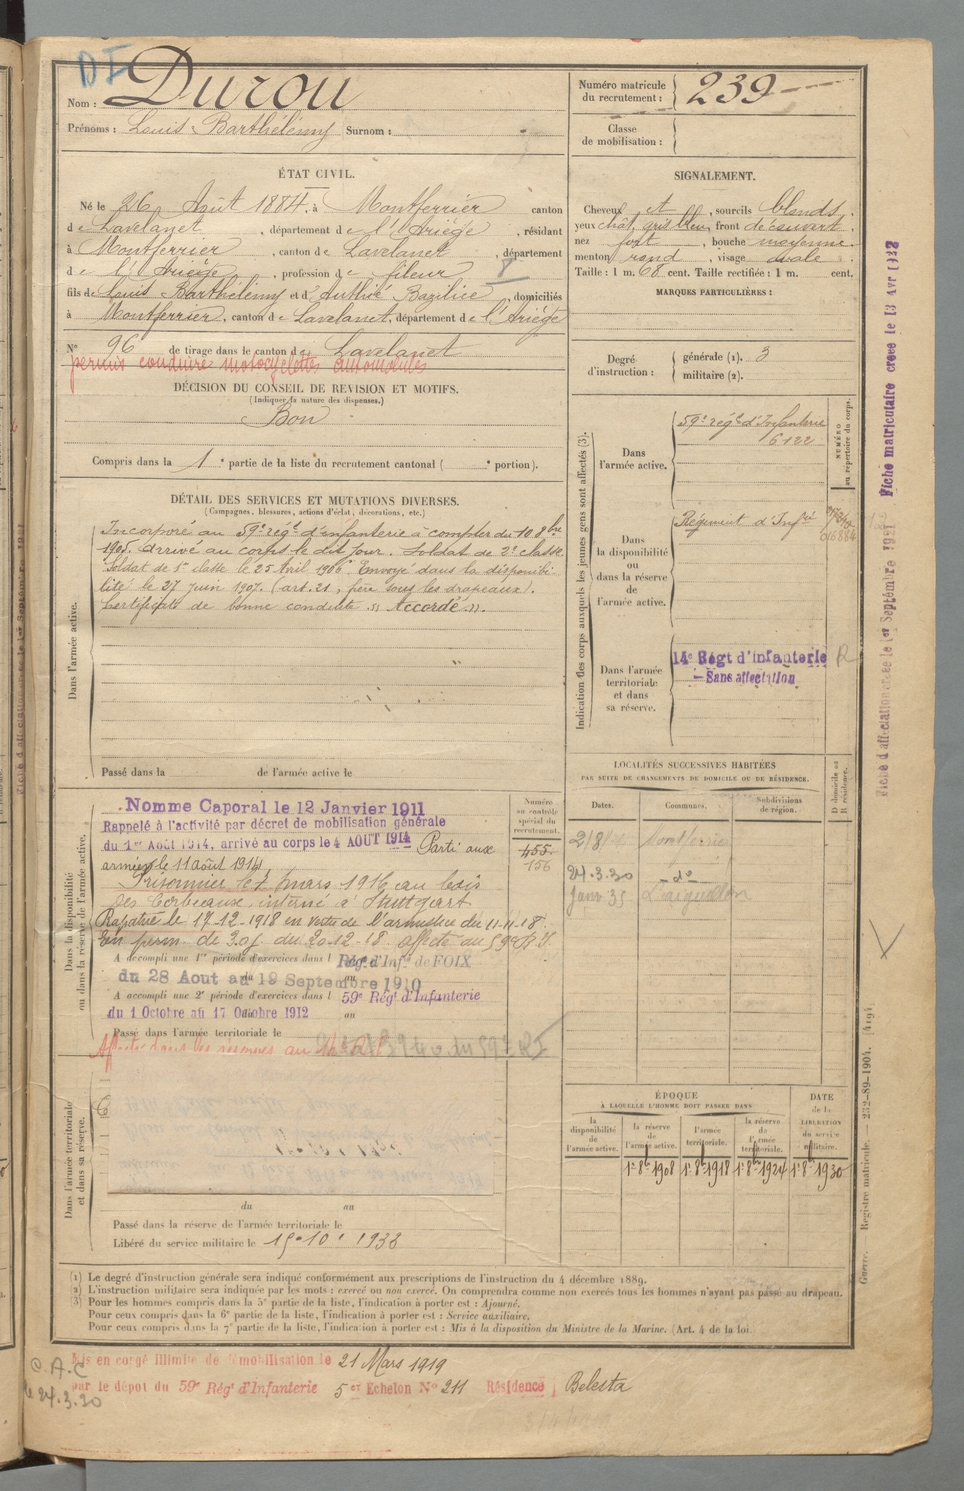 DI
Nom : Durou
Prénoms : Louis Barthélémy Surnom :
Numéro matricule du recrutement : 239
Classe de mobilisation :
ÉTAT CIVIL.
Né le 26 Août 1884, à Montferrier canton
de Lavelanet, département de l'Ariège, résidant
à Montferrier, canton de Lavelanet, département
de l'Ariège, profession de fileur
fils de Louis Barthélémy et d' Bazilice, domiciliés
à Montferrier, canton de Lavelanet, département de l'Ariège
N° 96 de tirage dans le canton de Lavelanet
permis conduire motocyclettes automobiles
DÉCISION DU CONSEIL DE REVISION ET MOTIFS.
(Indiquer la nature des dispenses.)
Bon
Compris dans la 1e partie de la liste du recrutement cantonal ( e portion).
SIGNALEMENT.
Cheveux et, sourcils blonds.
yeux chât. gris bleu, front découvert.
nez fort, bouche moyenne.
menton rond, visage ovale.
Taille : 1 m. 68 cent. Taille rectifiée : 1 m. cent.
MARQUES PARTICULIÈRES :
Degré d'instruction : générale (1). 3
militaire (2).
DÉTAIL DES SERVICES ET MUTATIONS DIVERSES.
(Campagnes, blessures, actions d'éclat, décorations, etc.)
Dans l'armée active.
Incorporé au 59e régt d'infanterie à compter du 10 8bre
1905. arrivé au corps le dit jour. Soldat de 2e classe.
Soldat de 1e classe le 25 Avril 1906. Envoyé dans la disponibi-
lité le 27 juin 1907. (art. 21, frère sous les drapeaux).
Certificat de bonne conduite "Accordé".
Passé dans la de l'armée active le
Indication des corps auxquels les jeunes gens sont affectés (3).
NUMÉRO au répertoire du corps.
Dans l'armée active.
59e régt d'Infanterie
6122
Dans la disponibilité ou dans la réserve de l'armée active.
Régiment d'Infie
Dans l'armée territoriale et dans sa réserve.
14e Régt d'infanterie
- Sans affectation
R
LOCALITÉS SUCCESSIVES HABITÉES
PAR SUITE DE CHANGEMENTS DE DOMICILE OU DE RÉSIDENCE.
Dates. Communes. Subdivisions de région. D domicile ou R résidence.
Montferrier
24.3.30 -do-
Janv 35 L'aiguillon
Dans la disponibilité ou dans la réserve de l'armée active.
Numéro au contrôle spécial du recrutement.
455.
156
Nommé Caporal le 12 Janvier 1911
Rappelé à l'activité par décret de mobilisation générale
du 1er Août 1914, arrivé au corps le 4 AOUT 1914 Parti aux
armées le 11 août 1914.
Prisonnier le 7 mars 1916 au bois
des Corbeaux, interné à Stuttgart
Rapatrié le 17-12-1918 en vertu de l'armistice du 11-11-18.
En perm. de 30 j. du 20-12-18. affecté au 59e R.I.
A accompli une 1re période d'exercices dans l Régt d'Infie de FOIX
du 28 Aout au 19 Septembre 1910
A accompli une 2e période d'exercices dans l 59e Régt d'Infanterie
du 1 Octobre au 17 Octobre 1912
Passé dans l'armée territoriale le
Affecté dans les réserves au
Dans l'armée territoriale et dans sa réserve.
du au
Passé dans la réserve de l'armée territoriale le
Libéré du service militaire le 15.10. 1933
ÉPOQUE
À LAQUELLE L'HOMME DOIT PASSER DANS
DATE de la LIBÉRATION du service militaire.
la disponibilité de l'armée active. la réserve de l'armée active. l'armée territoriale. la réserve de l'armée territoriale.
1er 8bre 1908 1er 8bre 1918 1er 8bre 1924 1er 8bre 1930
(1) Le degré d'instruction générale sera indiqué conformément aux prescriptions de l'instruction du 4 décembre 1889.
(2) L'instruction militaire sera indiquée par les mots : exercé ou non exercé. On comprendra comme non exercés tous les hommes n'ayant pas passé au drapeau.
(3) Pour les hommes compris dans la 5e partie de la liste, l'indication à porter est : Ajourné.
Pour ceux compris dans la 6e partie de la liste, l'indication à porter est : Service auxiliaire.
Pour ceux compris dans la 7e partie de la liste, l'indication à porter est : Mis à la disposition du Ministre de la Marine. (Art. 4 de la loi.
Mis en congé illimité de démobilisation le 21 Mars 1919
par le dépôt du 59e Régt d'Infanterie 5er Echelon No 211 Résidence Belesta
C.A.C
le 24.3.30
Fiche matriculaire créée le 13 Avr 1922
Fiche d'affectation créée le 1er Septembre 1921
Guerre. Registre matricule. — 232-89-1904. [419]